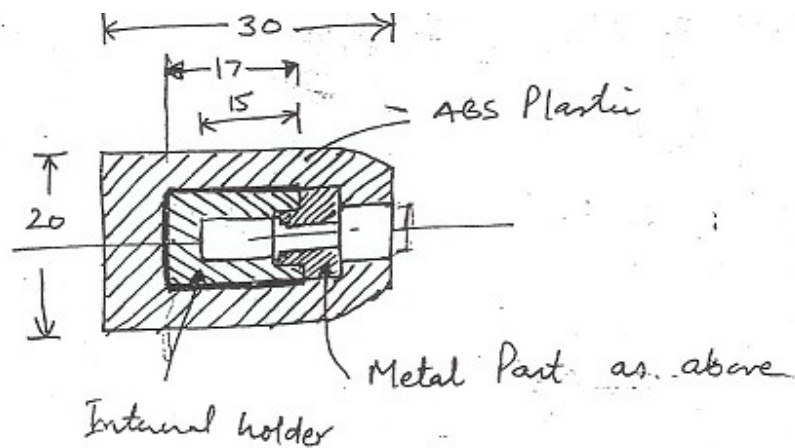 30
17
15
ABS Plastic
20
Metal Part as above
Internal holder